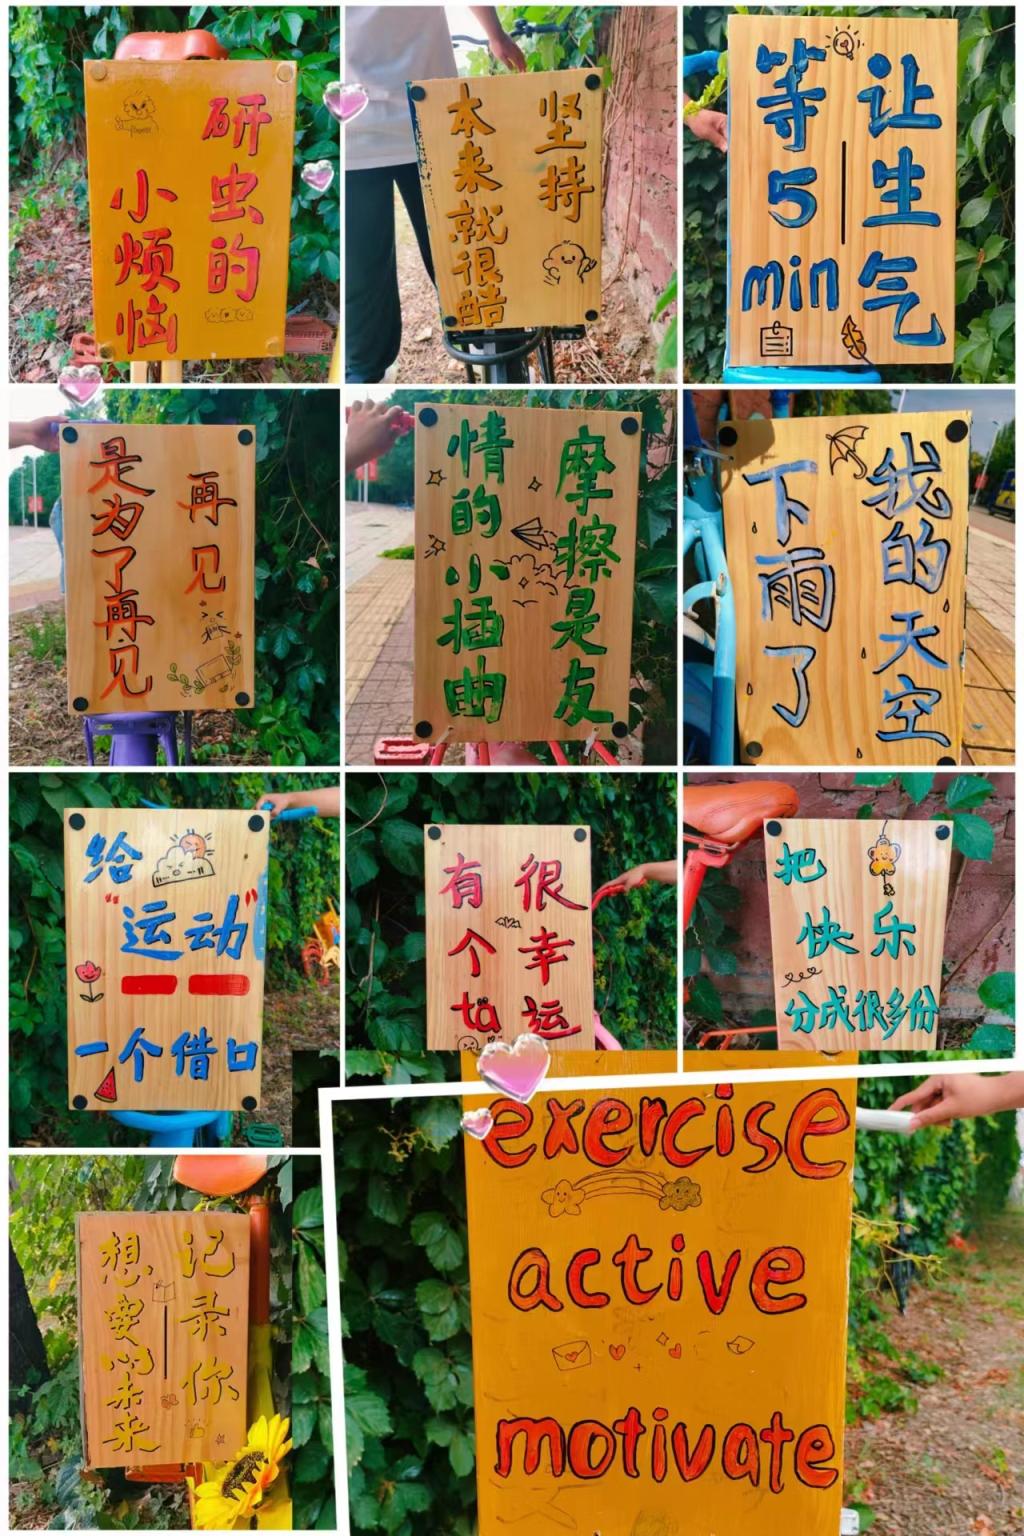 研虫的
小烦恼
坚持
本来就很酷
让生气
等5min
再见
是为了再见
摩擦是友
情的小插曲
我的天空
下雨了
给
"运动"
一个借口
很幸运
有个ta
把
快乐
分成很多份
记录你
想要的未来
exercise
active
motivate